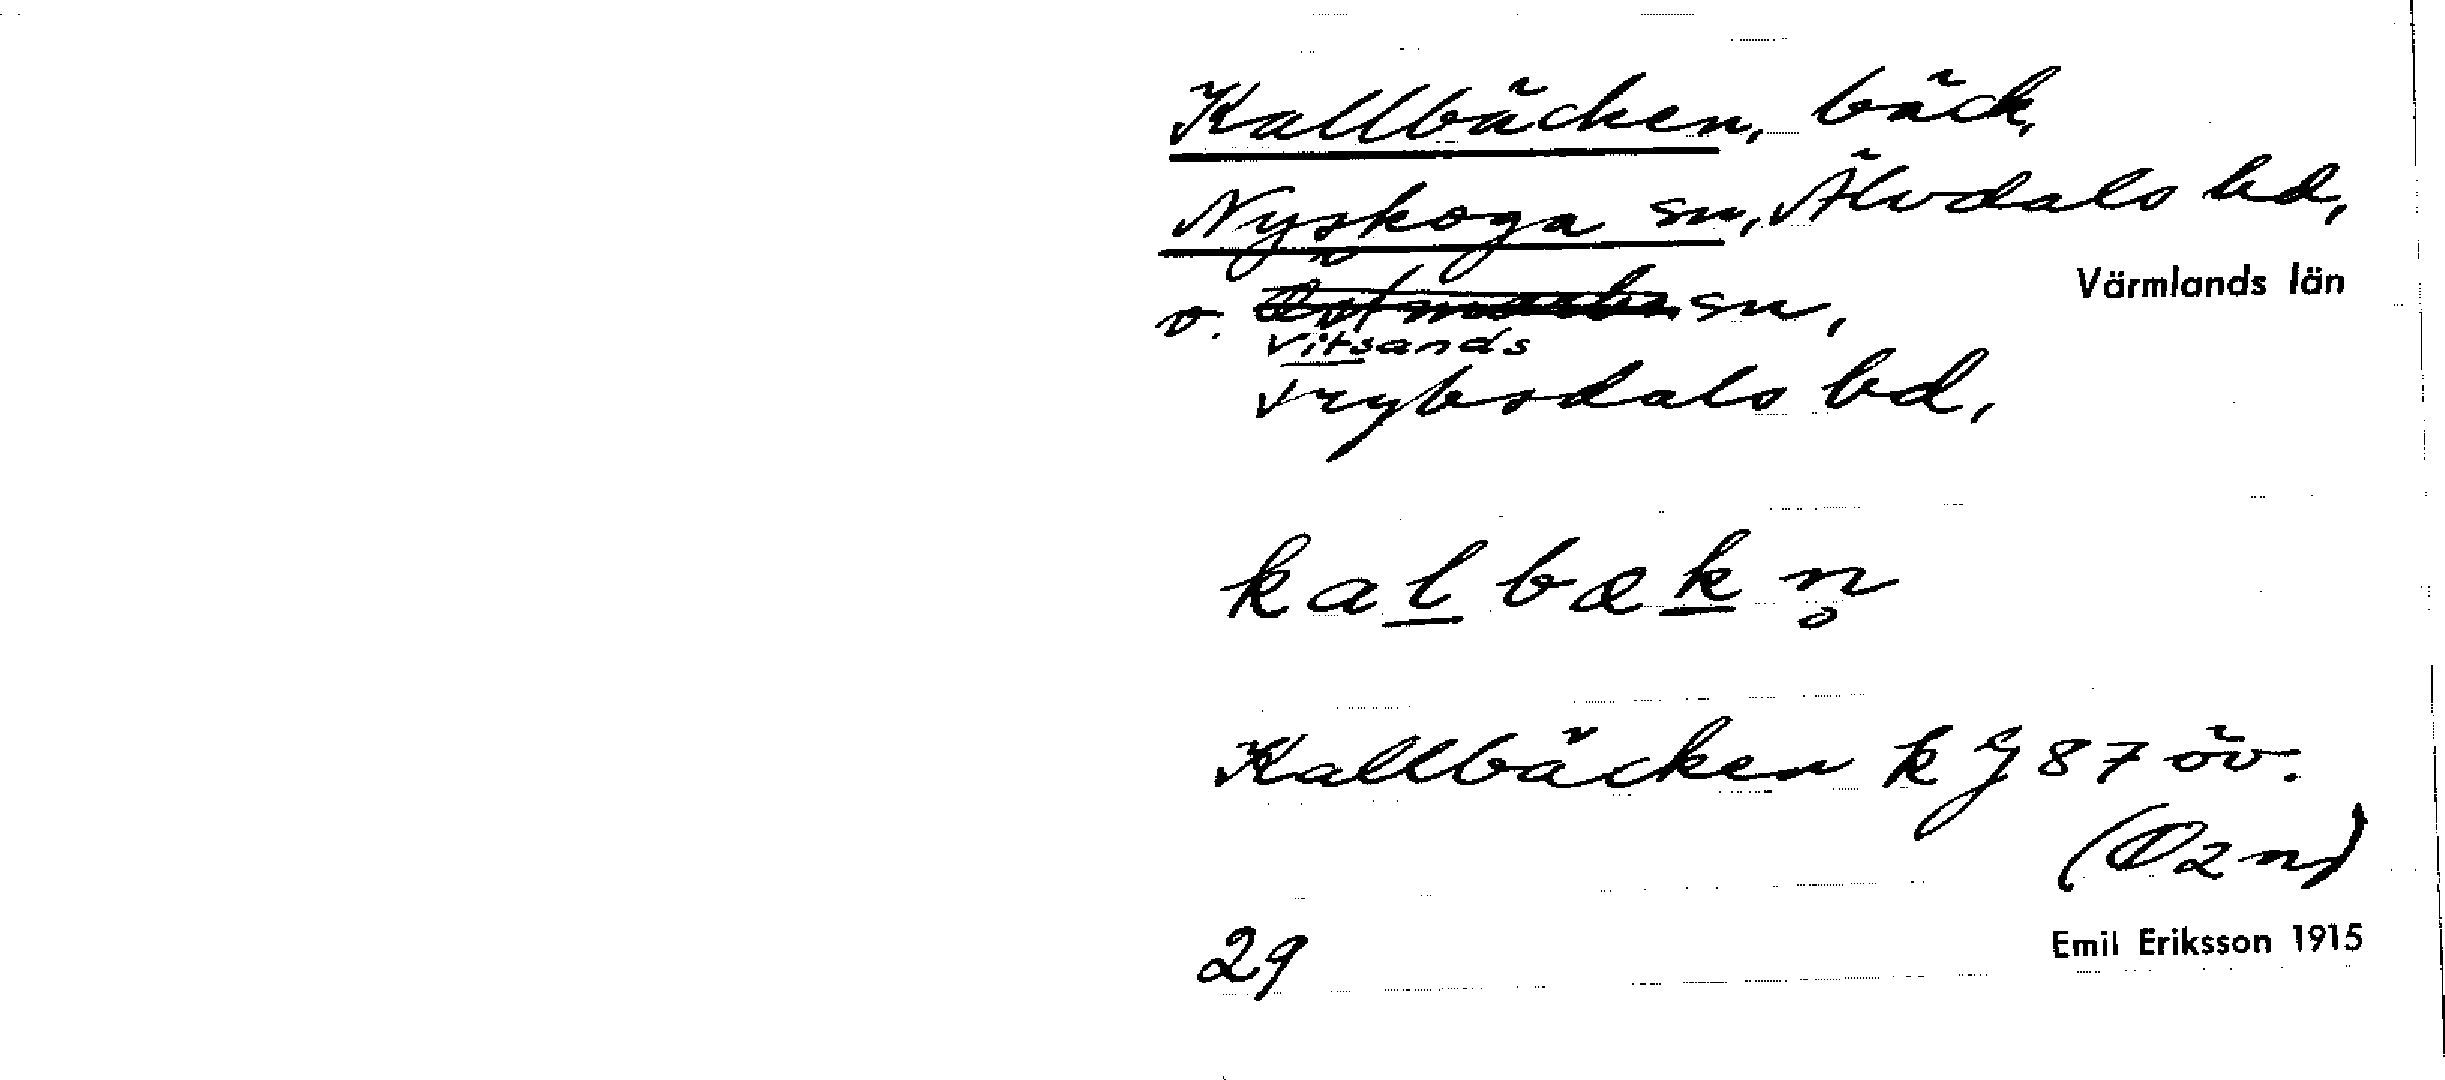 Kallbäcken, bäck,
Nyskoga sn, Älvdals hd,
Värmlands län
o. Östmarks sn,
Vitsands
Fryksdals hd,
kal̲bæk̲n̥
Kallbäcken k J 87 öv.
(Ozn)
29
Emil Eriksson 1915